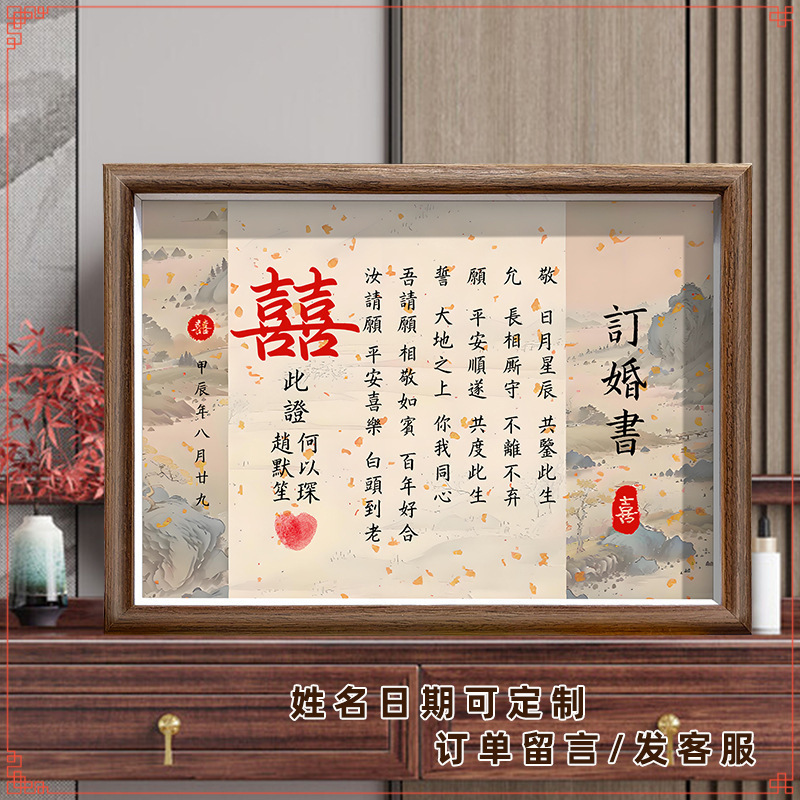 訂婚書
囍
敬 日月星辰 共鑒此生
允 長相厮守 不離不弃
願 平安順遂 共度此生
誓 大地之上 你我同心
吾請願 相敬如賓 百年好合
汝請願 平安喜樂 白頭到老
囍
此證
何以琛
趙默笙
囍
甲辰年八月廿九
姓名日期可定制
订单留言/发客服